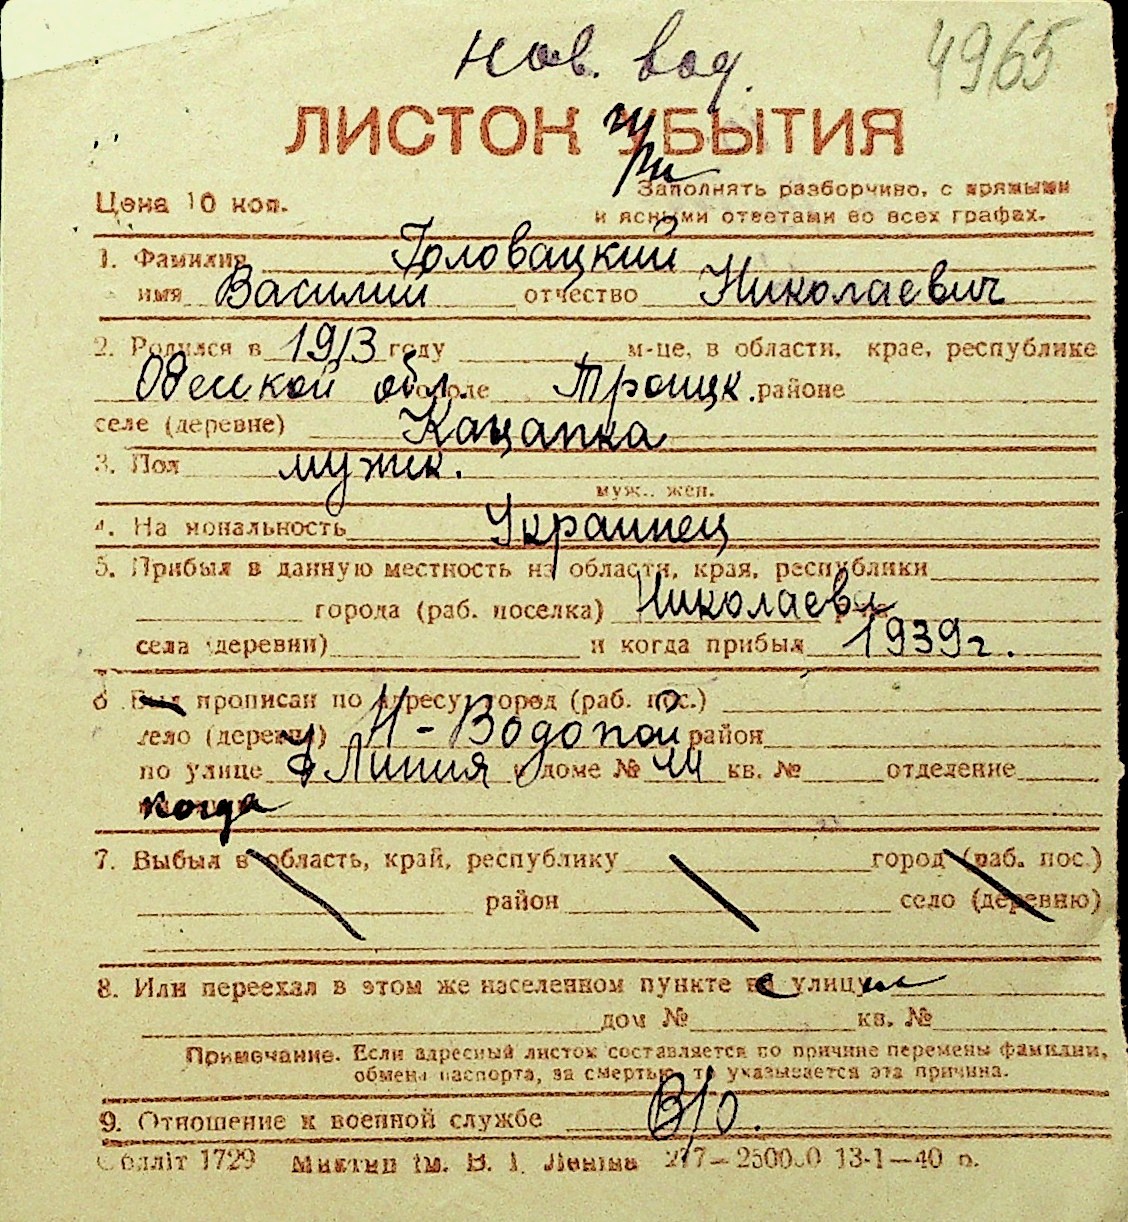 нов. вод.
4965
ЛИСТОК УБЫТИЯ
при
Цена 10 коп.
Заполнять разборчиво, с прямыми
и ясными ответами во всех графах.
1. Фамилия Головацкий
имя Василий отчество Николаевич
2. Родился в 1913 году м-це, в области, крае, республике
Одесской обл. городе Троицк. районе
селе (деревне) Кацапка
3. Пол мужск.
муж., жен.
4. Национальность Украинец
5. Прибыл в данную местность из области, края, республики
города (раб. поселка) Николаева
села (деревни) и когда прибыл 1939 г.
6 Был прописан по адресу: город (раб. пос.)
село (деревня) Н-Водопой район
по улице Линия в доме № кв. № отделение
когда
7. Выбыл в область, край, республику город (раб. пос.)
район село (деревню)
8. Или переехал в этом же населенном пункте с улицы
дом № кв. №
Примечание. Если адресный листок составляется по причине перемены фамилии,
обмена паспорта, за смертью, то указывается эта причина.
9. Отношение к военной службе В/о.
Облліт 1729 Миктип ім. В. І. Леніна 277—250000 13-1—40 р.